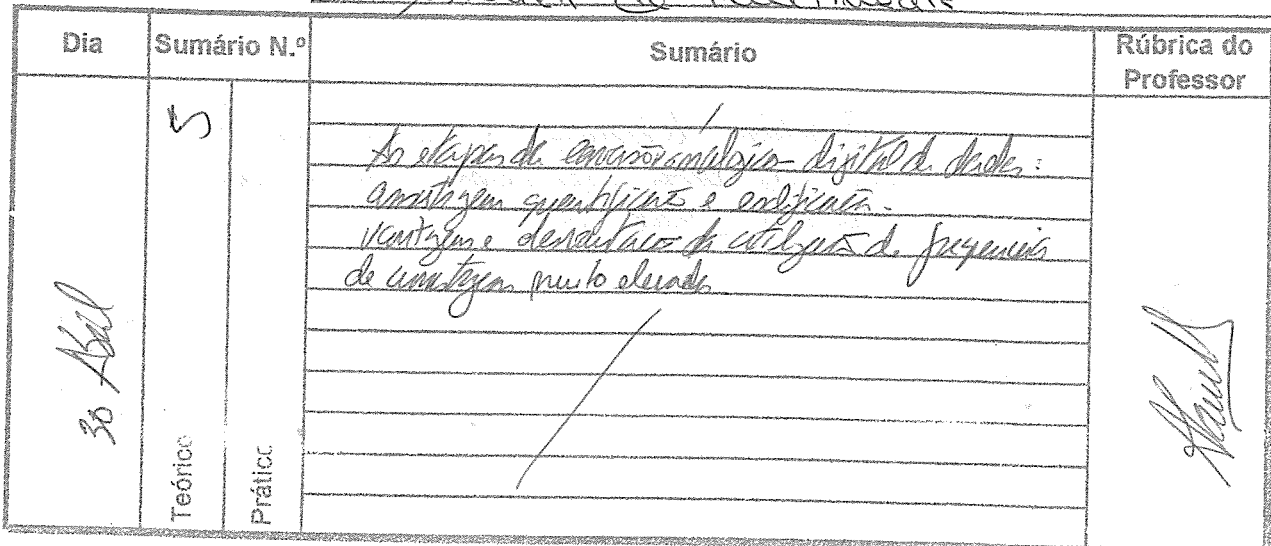 Dia
Sumário N.º
Sumário
Rúbrica do
Professor
30 Abril
Teórico
5
Prático
As etapas da conversão analógico-digital de dados:
amostragem quantificação e codificação.
Vantagens e desvantagens da utilização de frequências
de amostragem muito elevadas